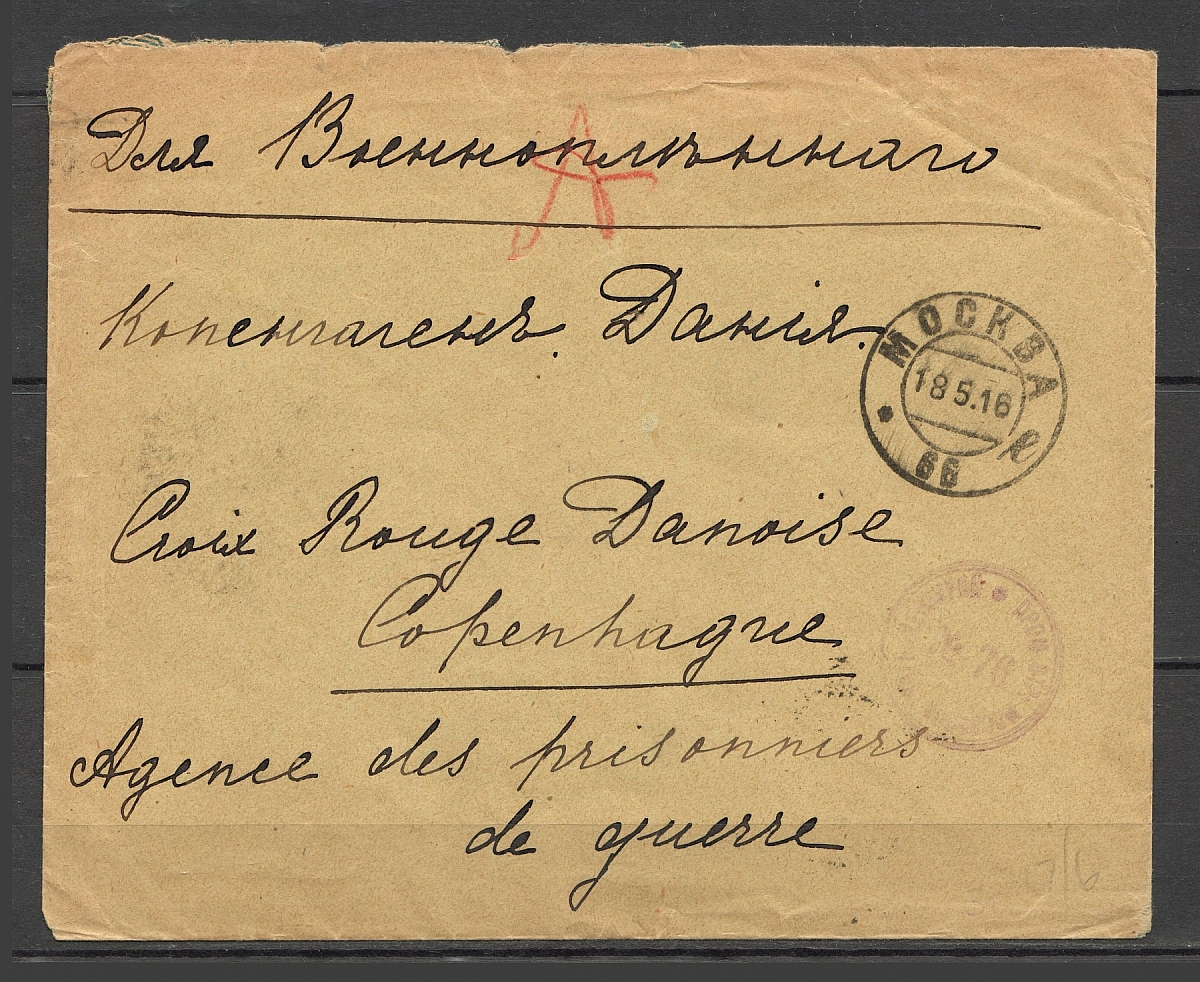 Для Военноплѣннаго
А
Копенгагенъ. Данія.
МОСКВА
18 5.16
66
Croix Rouge Danoise
Copenhague
№ 76
Agence des prisonniers
de guerre